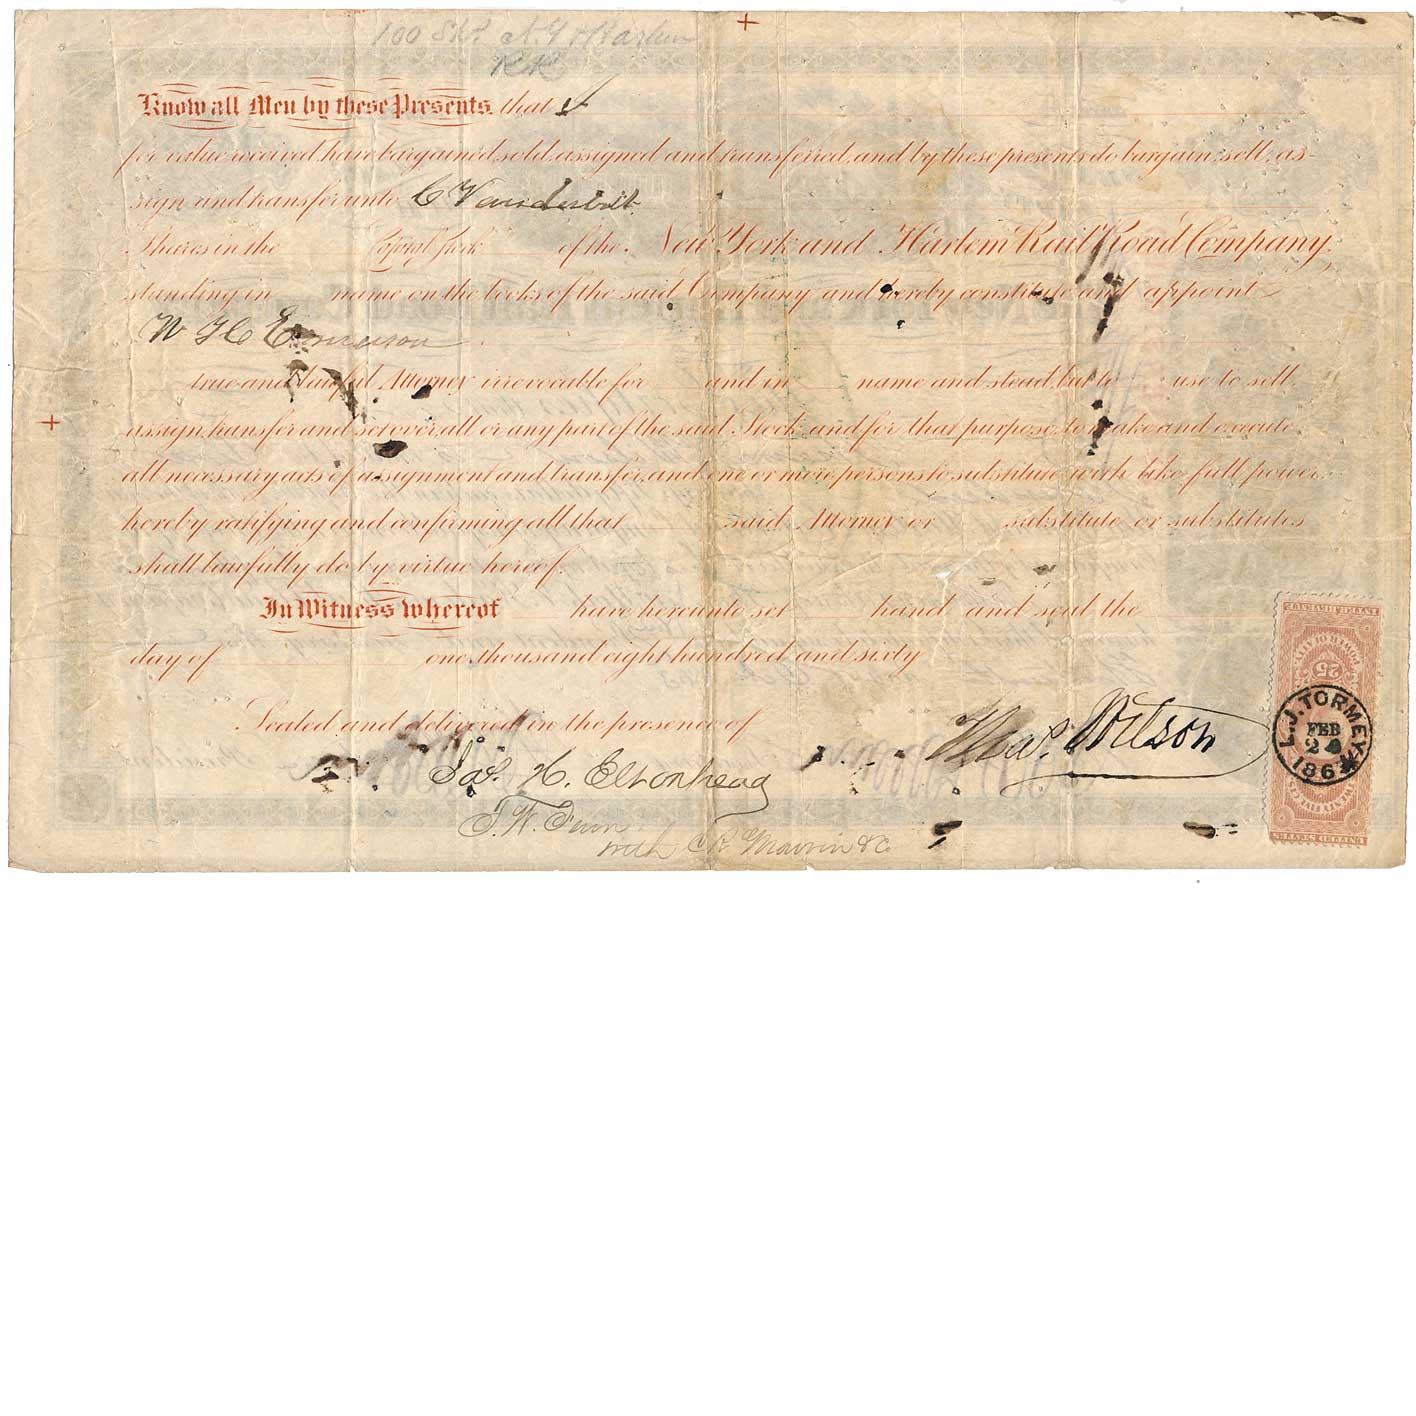 100 Shs. N.Y. & Harlem
RR
Know all Men by these Presents, that I
for value received, have bargained, sold, assigned and transferred, and by these presents do bargain, sell, as-
sign and transfer unto C Vanderbilt
Shares in the Capital Stock of the New York and Harlem Rail Road Company,
standing in name on the books of the said Company and hereby constitute and appoint
W H Emerson
true and lawful Attorney irrevocable for and in name and stead, but to use to sell,
assign, transfer and set over, all or any part of the said Stock, and for that purpose, to make and execute,
all necessary acts of assignment and transfer, and one or more persons to substitute with like full power,
hereby ratifying and confirming all that said Attorney or substitute or substitutes
shall lawfully do by virtue hereof.
In Witness whereof have hereunto set hand and seal the
day of one thousand eight hundred and sixty
Sealed and delivered in the presence of
Thos. Wilson
Jas. H. Eltonhead
T. W. Fenn
with
L.J. TORMEY
FEB
186
25
UNITED STATES